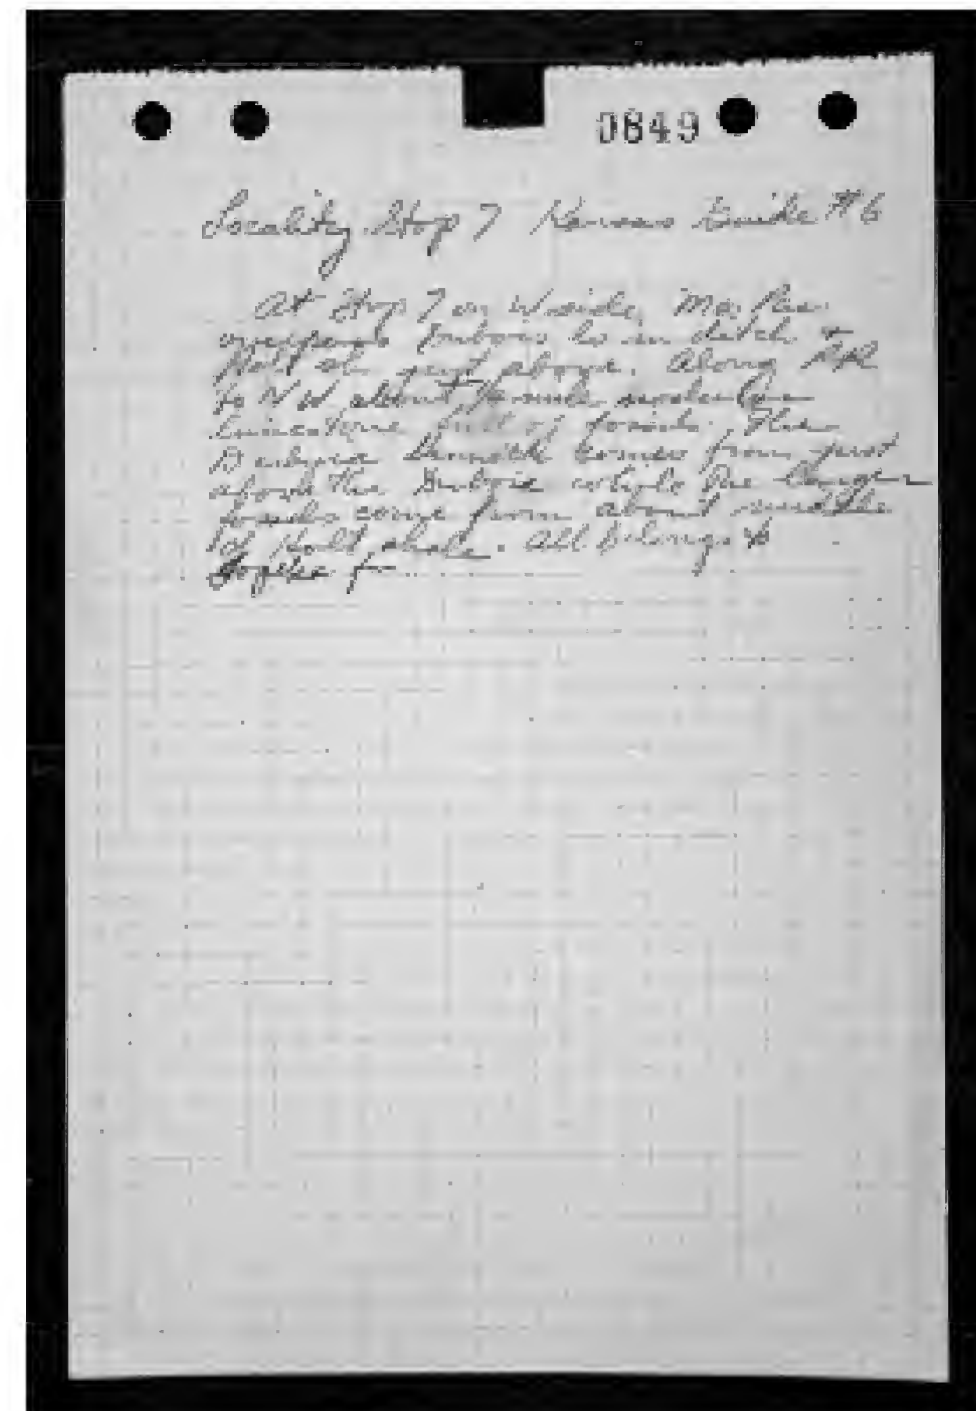 0849
Locality Stop 7 Kansas Guide #6
At Stop 7 on W side, Mo. Pac.
overpass DuBois ls in ditch &
Holt sh just above. Along RR
to NW about mile
limestone full of fossils. The
Derbyia comes from just
above the DuBois while the larger
fossils come from about middle
of Holt shale. All belongs to
Topeka fm